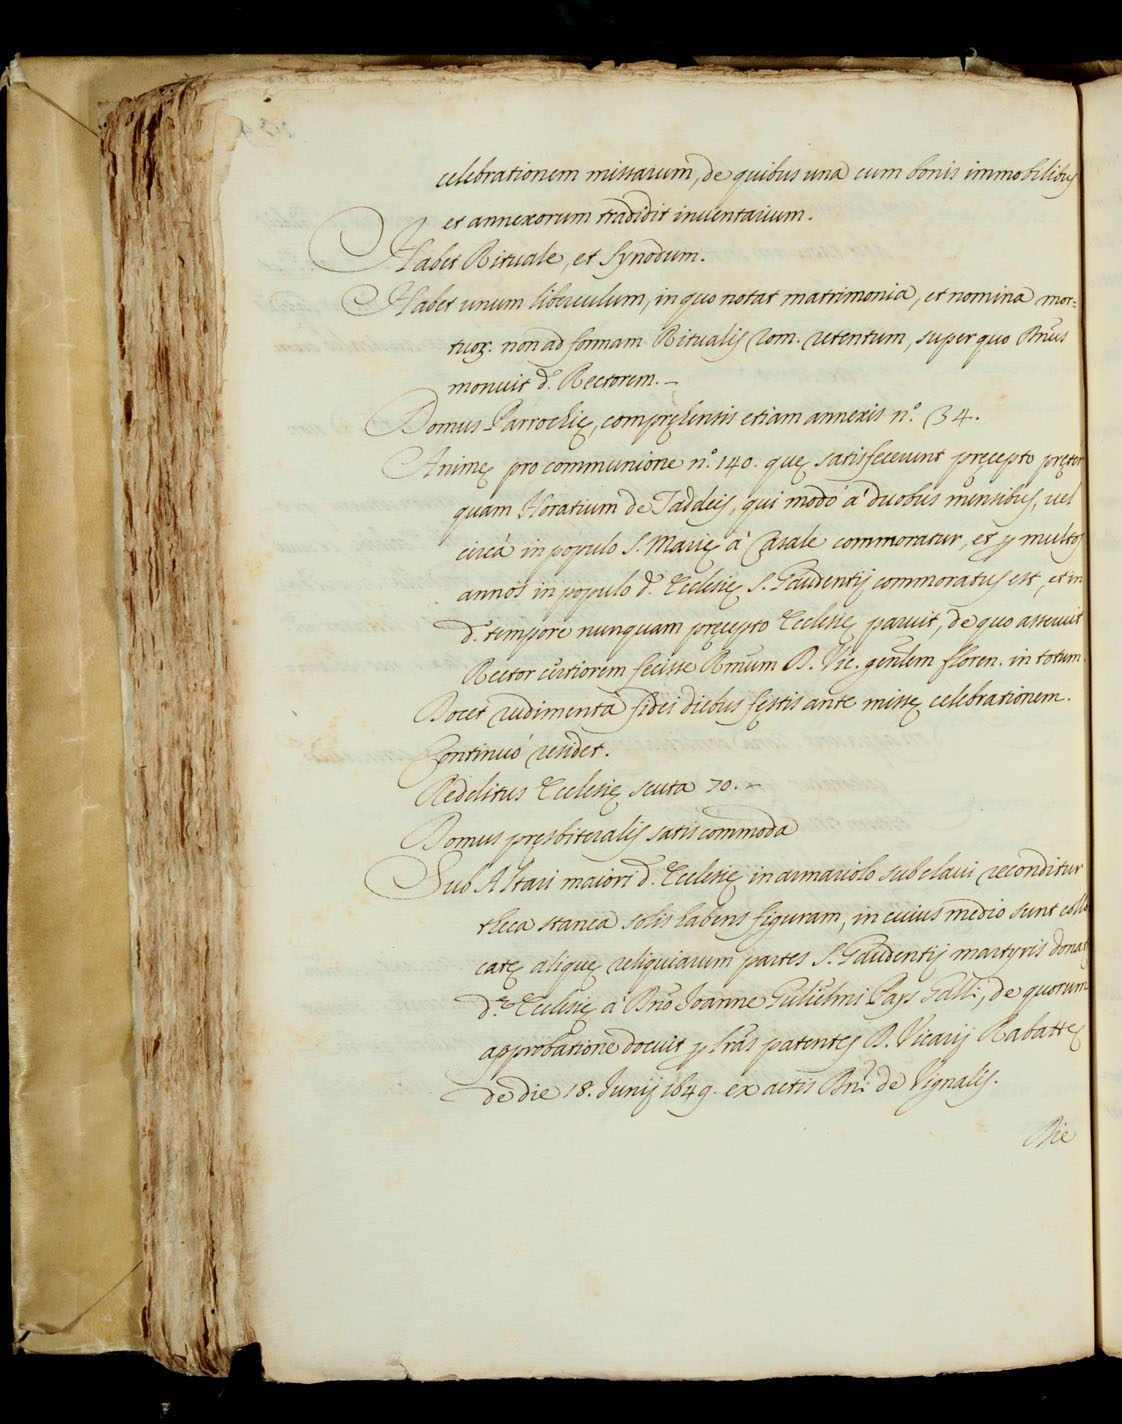 celebrationem missarum, de quibus una cum bonis immobilibus
et annexorum tradidit inventarium.
Habet Rituale, et Synodum.
Habet unum liberculum, in quo notat matrimonia, et nomina mor=
tuoꝝ. non ad formam Ritualis Rom. retentum, super quo Rm̃us
monuit d. Rectorem. –
Domus Parrochię, compręhensis etiam annexis n.º 34.
Animę pro communione n.º 140. quę satisfecerunt pręcepto pręter
quam Horatium de Taddeis, qui modò à duobus mensibus, vel
circà in populo S. Marię à Casale commoratur, et ꝑ multos
annos in populo d. Ecclesię S. Gaudentij commoratus est, et in
d. tempore nunquam pręcepto Ecclesię paruit, de quo asseruit
Rector certiorem fecisse Rm̃um D. Vic. gen̄lem floren. in totum.
Docet rudimenta fidei diebus festis ante missę celebrationem.
Continuò residet.
Redditus Ecclesię scuta 70. –
Domus pręsbiteralis satis commoda
Sub Altari maiori d. Ecclesię in armariolo sub clavi reconditur
theca stanea solis habens figuram, in cuius medio sunt collo
catę aliquę reliquiarum partes S. Gaudentij martyris donatę
d.ę Ecclesię à Dn̄o Joanne Gulielmi Pays Gall:, de quorum
approbatione docuit ꝑ lr̃as patentes D. Vicarij Rabattę
de die 18. Junij 1649. ex actis Dn̄i de Vignalis.
Die